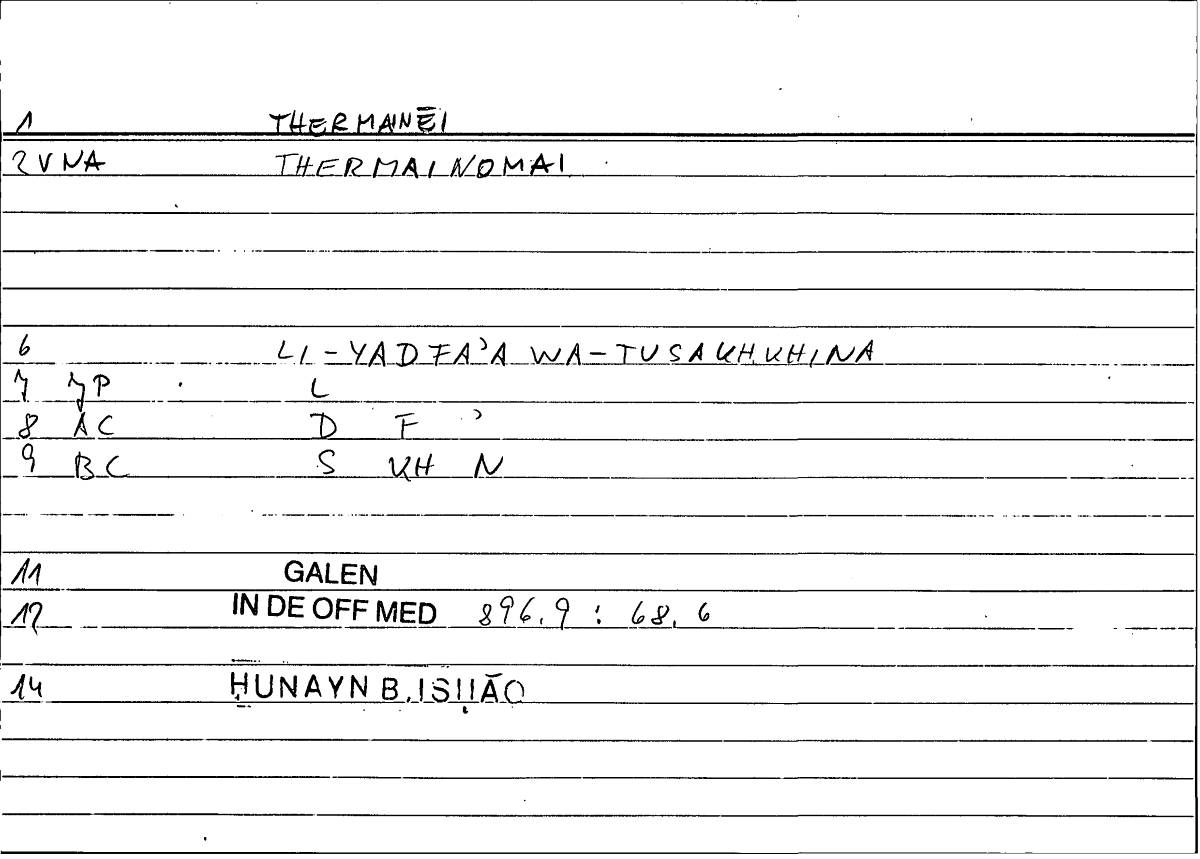 1 THERMANĒI
2 VNA THERMAINOMAI
6 LI-YADFAʾA WA-TUSAKHKHINA
7 JP L
8 AC D F ʾ
9 BC S KH N
11 GALEN
12 IN DE OFF MED 896.9 : 68.6
14 ḤUNAYN B. ISḤĀQ